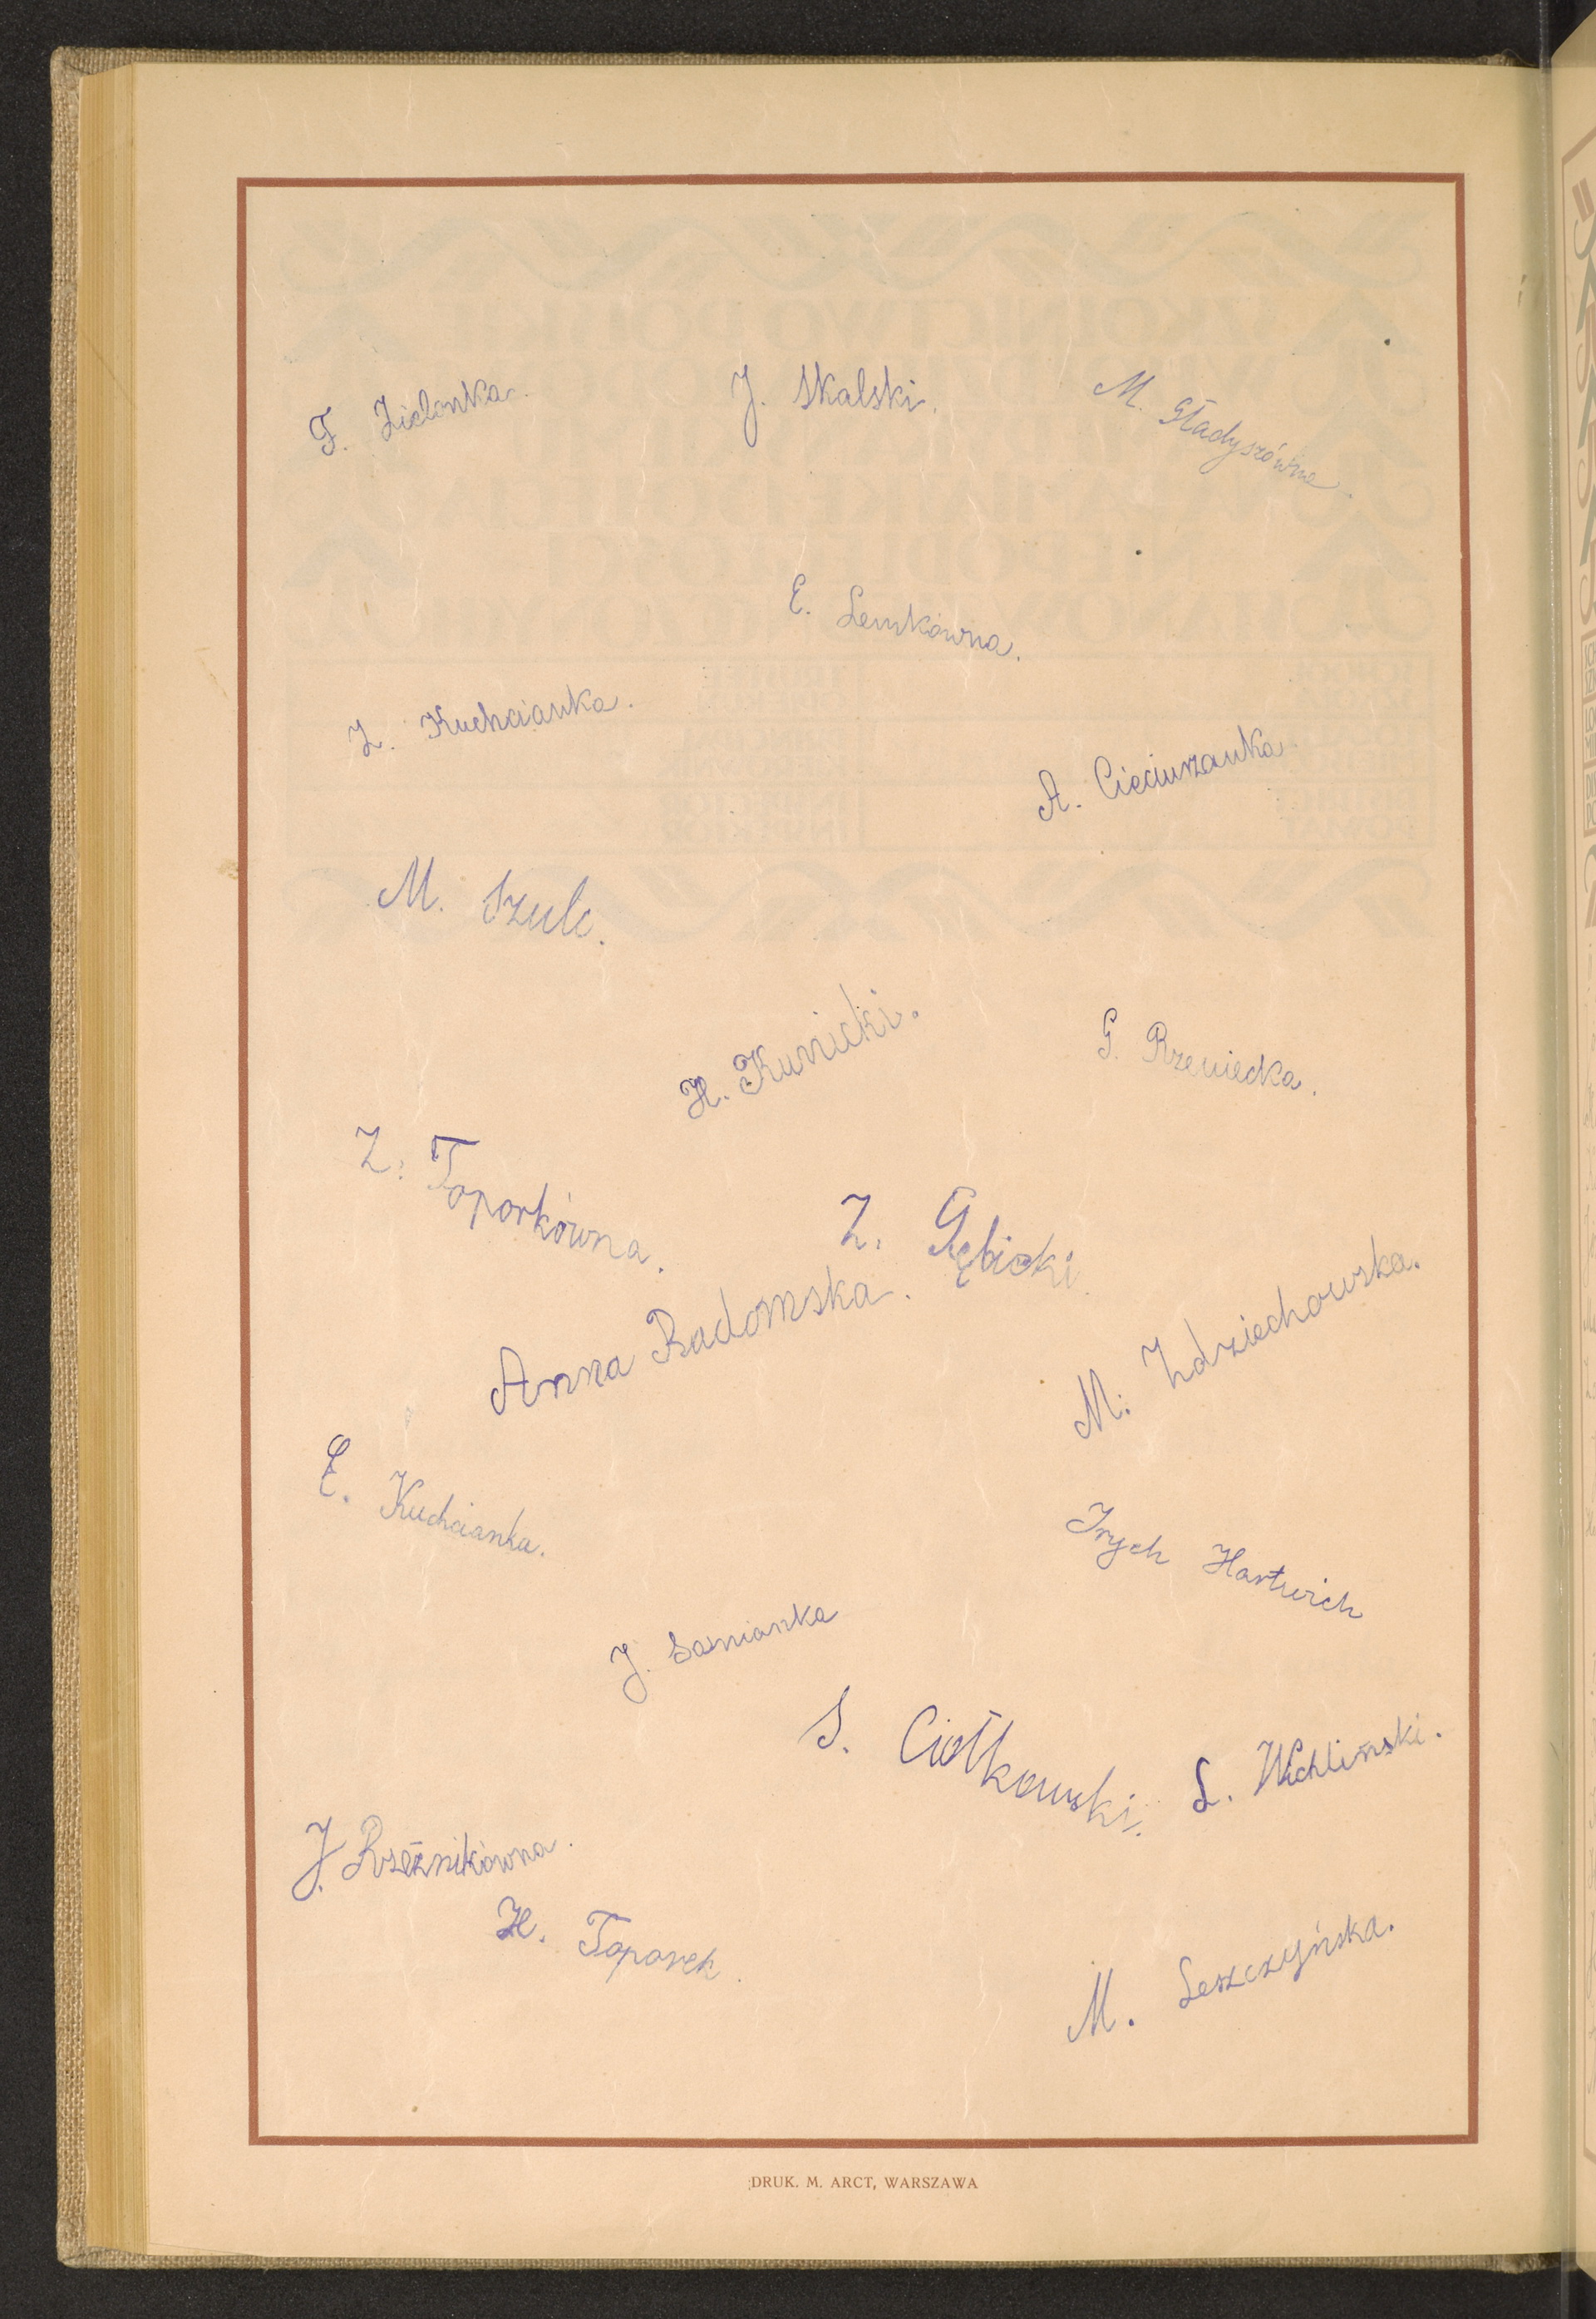 F. Zielonka.
J. Skalski.
M. Gładyszówna.
E. Lemkówna.
Z. Kuchcianka.
A. Cieciurzanka
M. Szulc.
H. Kunicki.
G. Rzeniecka.
Z. Toporkówna.
Z. Gębicki
Anna Radomska.
M. Zdziechowska.
E. Kuchcianka.
Irych Hartwich
J. Sosnianka
S. Ciołkowski.
L. Wichliński.
J. Rzeźnikówna.
H. Toporek.
M. Leszczyńska.
DRUK. M. ARCT, WARSZAWA